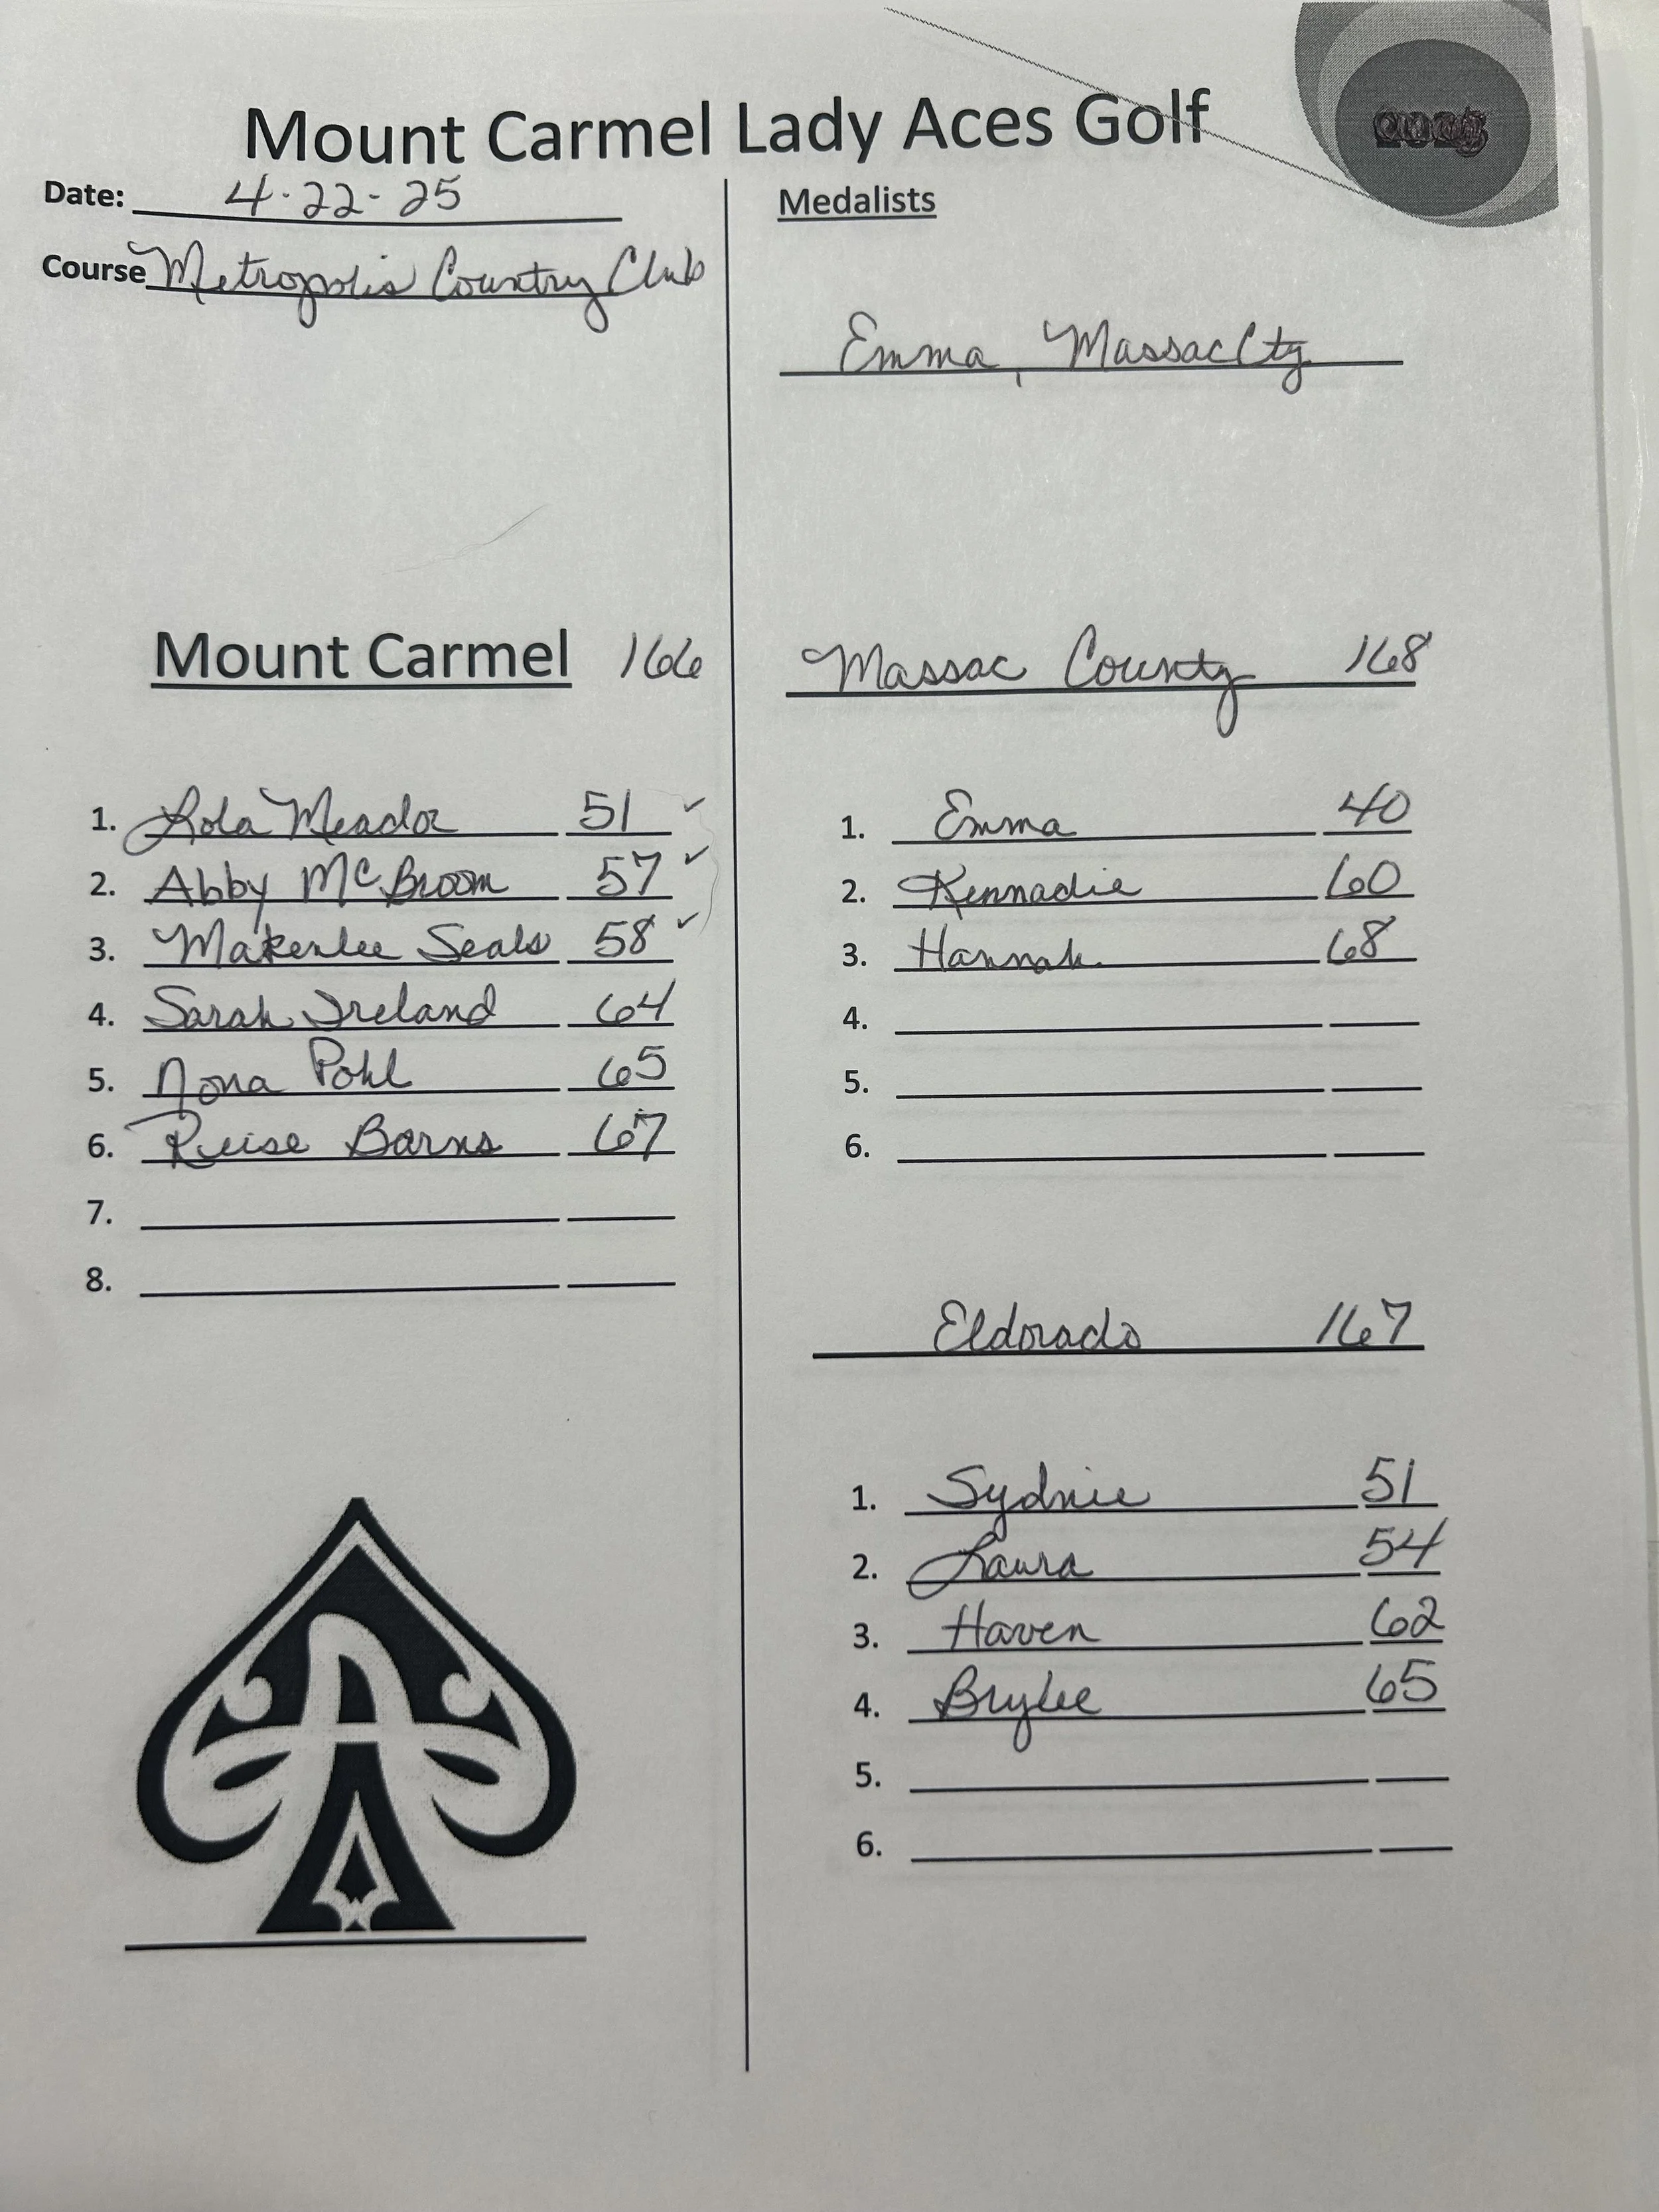 Mount Carmel Lady Aces Golf
Date: 4-22-25
Course Metropolis Country Club
Medalists
Emma, Massac Cty
Mount Carmel 166
1. Lola Meador 51 ✓
2. Abby McBroom 57 ✓
3. Makenlee Seals 58 ✓
4. Sarah Ireland 64
5. Nona Pohl 65
6. Reise Barns 67
7.
8.
Massac County 168
1. Emma 40
2. Kennadie 60
3. Hannah 68
4.
5.
6.
Eldorado 167
1. Sydnie 51
2. Laura 54
3. Haven 62
4. Brylee 65
5.
6.